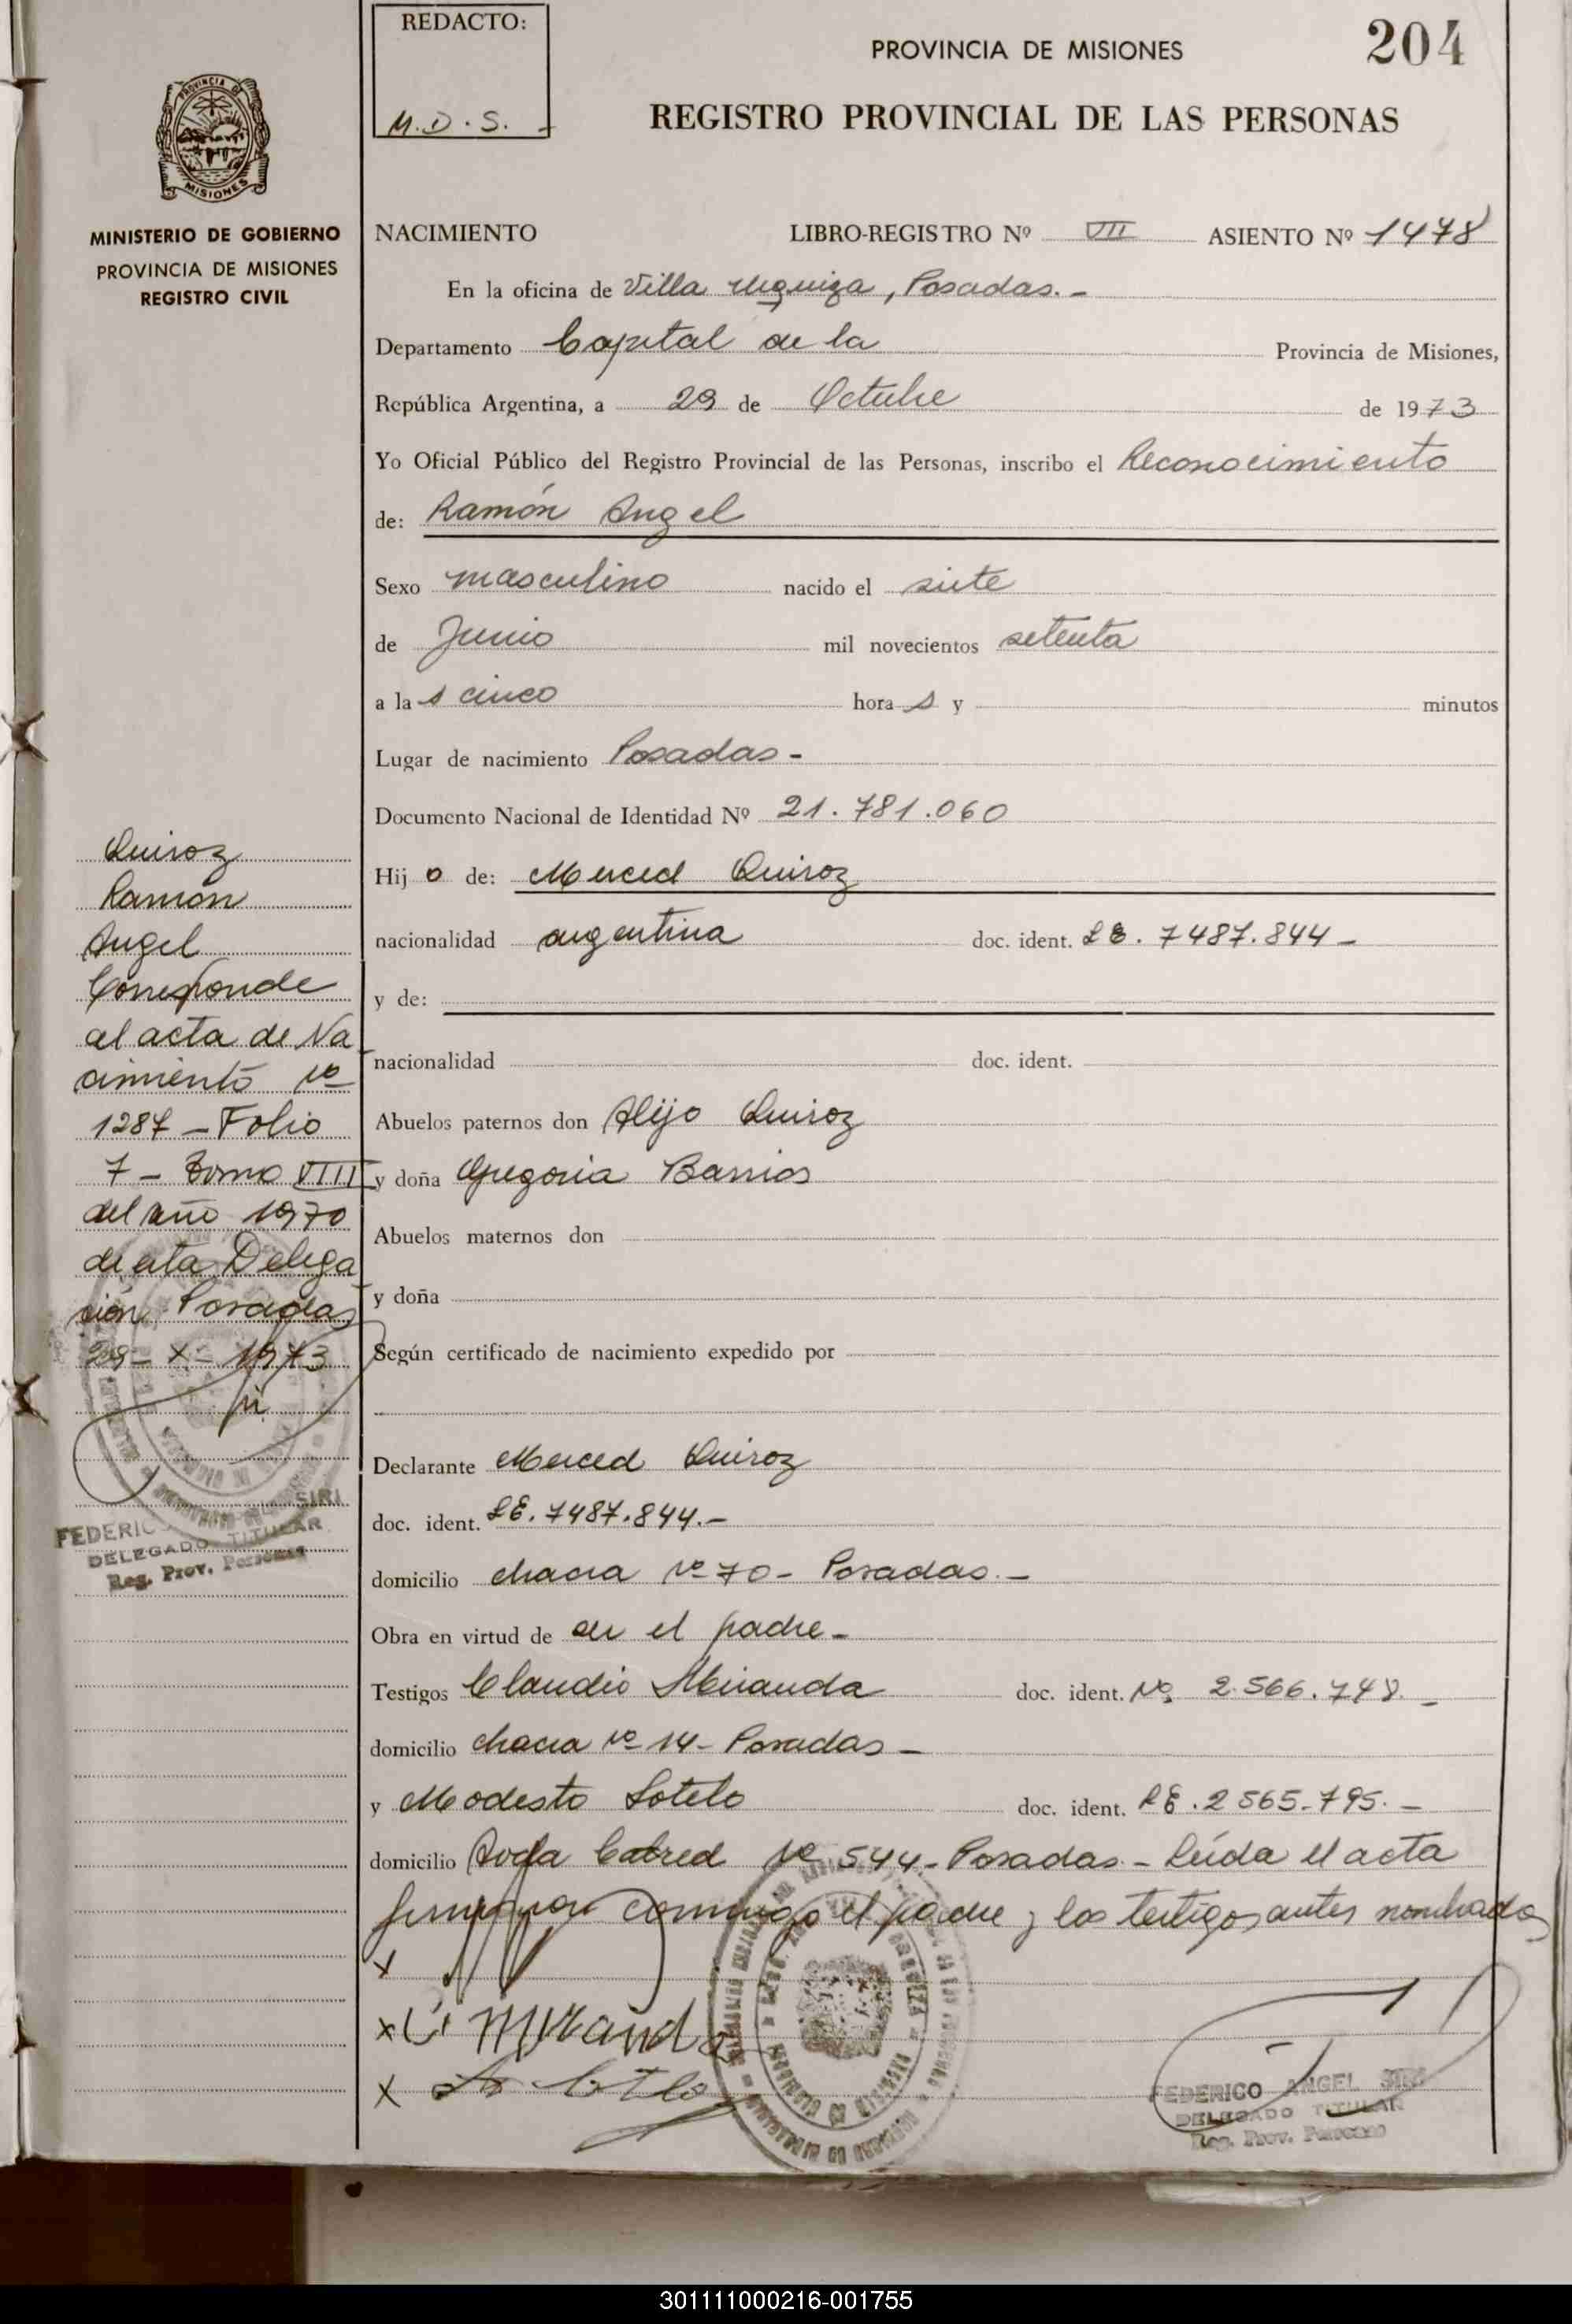 REDACTO:
M.D.S. -
PROVINCIA DE MISIONES
204
REGISTRO PROVINCIAL DE LAS PERSONAS
PROVINCIA DE
MISIONES
MINISTERIO DE GOBIERNO
PROVINCIA DE MISIONES
REGISTRO CIVIL
NACIMIENTO LIBRO-REGISTRO Nº VII ASIENTO Nº 1478
En la oficina de Villa Urquiza, Posadas. -
Departamento Capital de la Provincia de Misiones,
República Argentina, a 29 de Octubre de 1973
Yo Oficial Público del Registro Provincial de las Personas, inscribo el Reconocimiento
de: Ramón Angel
Sexo masculino nacido el siete
de Junio mil novecientos setenta
a las cinco horas y minutos
Lugar de nacimiento Posadas -
Documento Nacional de Identidad Nº 21.781.060
Hijo de: Merced Quiroz
nacionalidad argentina doc. ident. LE. 7487.844 -
y de:
nacionalidad doc. ident.
Abuelos paternos don Alijo Quiroz
y doña Gregoria Barrios
Abuelos maternos don
y doña
Según certificado de nacimiento expedido por
Declarante Merced Quiroz
doc. ident. LE. 7487.844. -
domicilio chacra Nº 70 - Posadas. -
Obra en virtud de ser el padre -
Testigos Claudio Miranda doc. ident. Nº 2.566.748. -
domicilio chacra Nº 14 - Posadas -
y Modesto Sotelo doc. ident. LE. 2565.795. -
domicilio Avda Cabred Nº 544 - Posadas - Leída el acta
firman conmigo el padre y los testigos antes nombrados
x
x C Miranda
x
Quiroz
Ramón
Angel
Corresponde
al acta de Na
cimiento Nº
1287 - Folio
7 - Tomo VIII
del año 1970
de esta Delega
ción Posadas
29 - X - 1973
FEDERICO SIRI
DELEGADO TITULAR
Reg. Prov. Personas
FEDERICO ANGEL SIRI
DELEGADO TITULAR
Reg. Prov. Personas
301111000216-001755